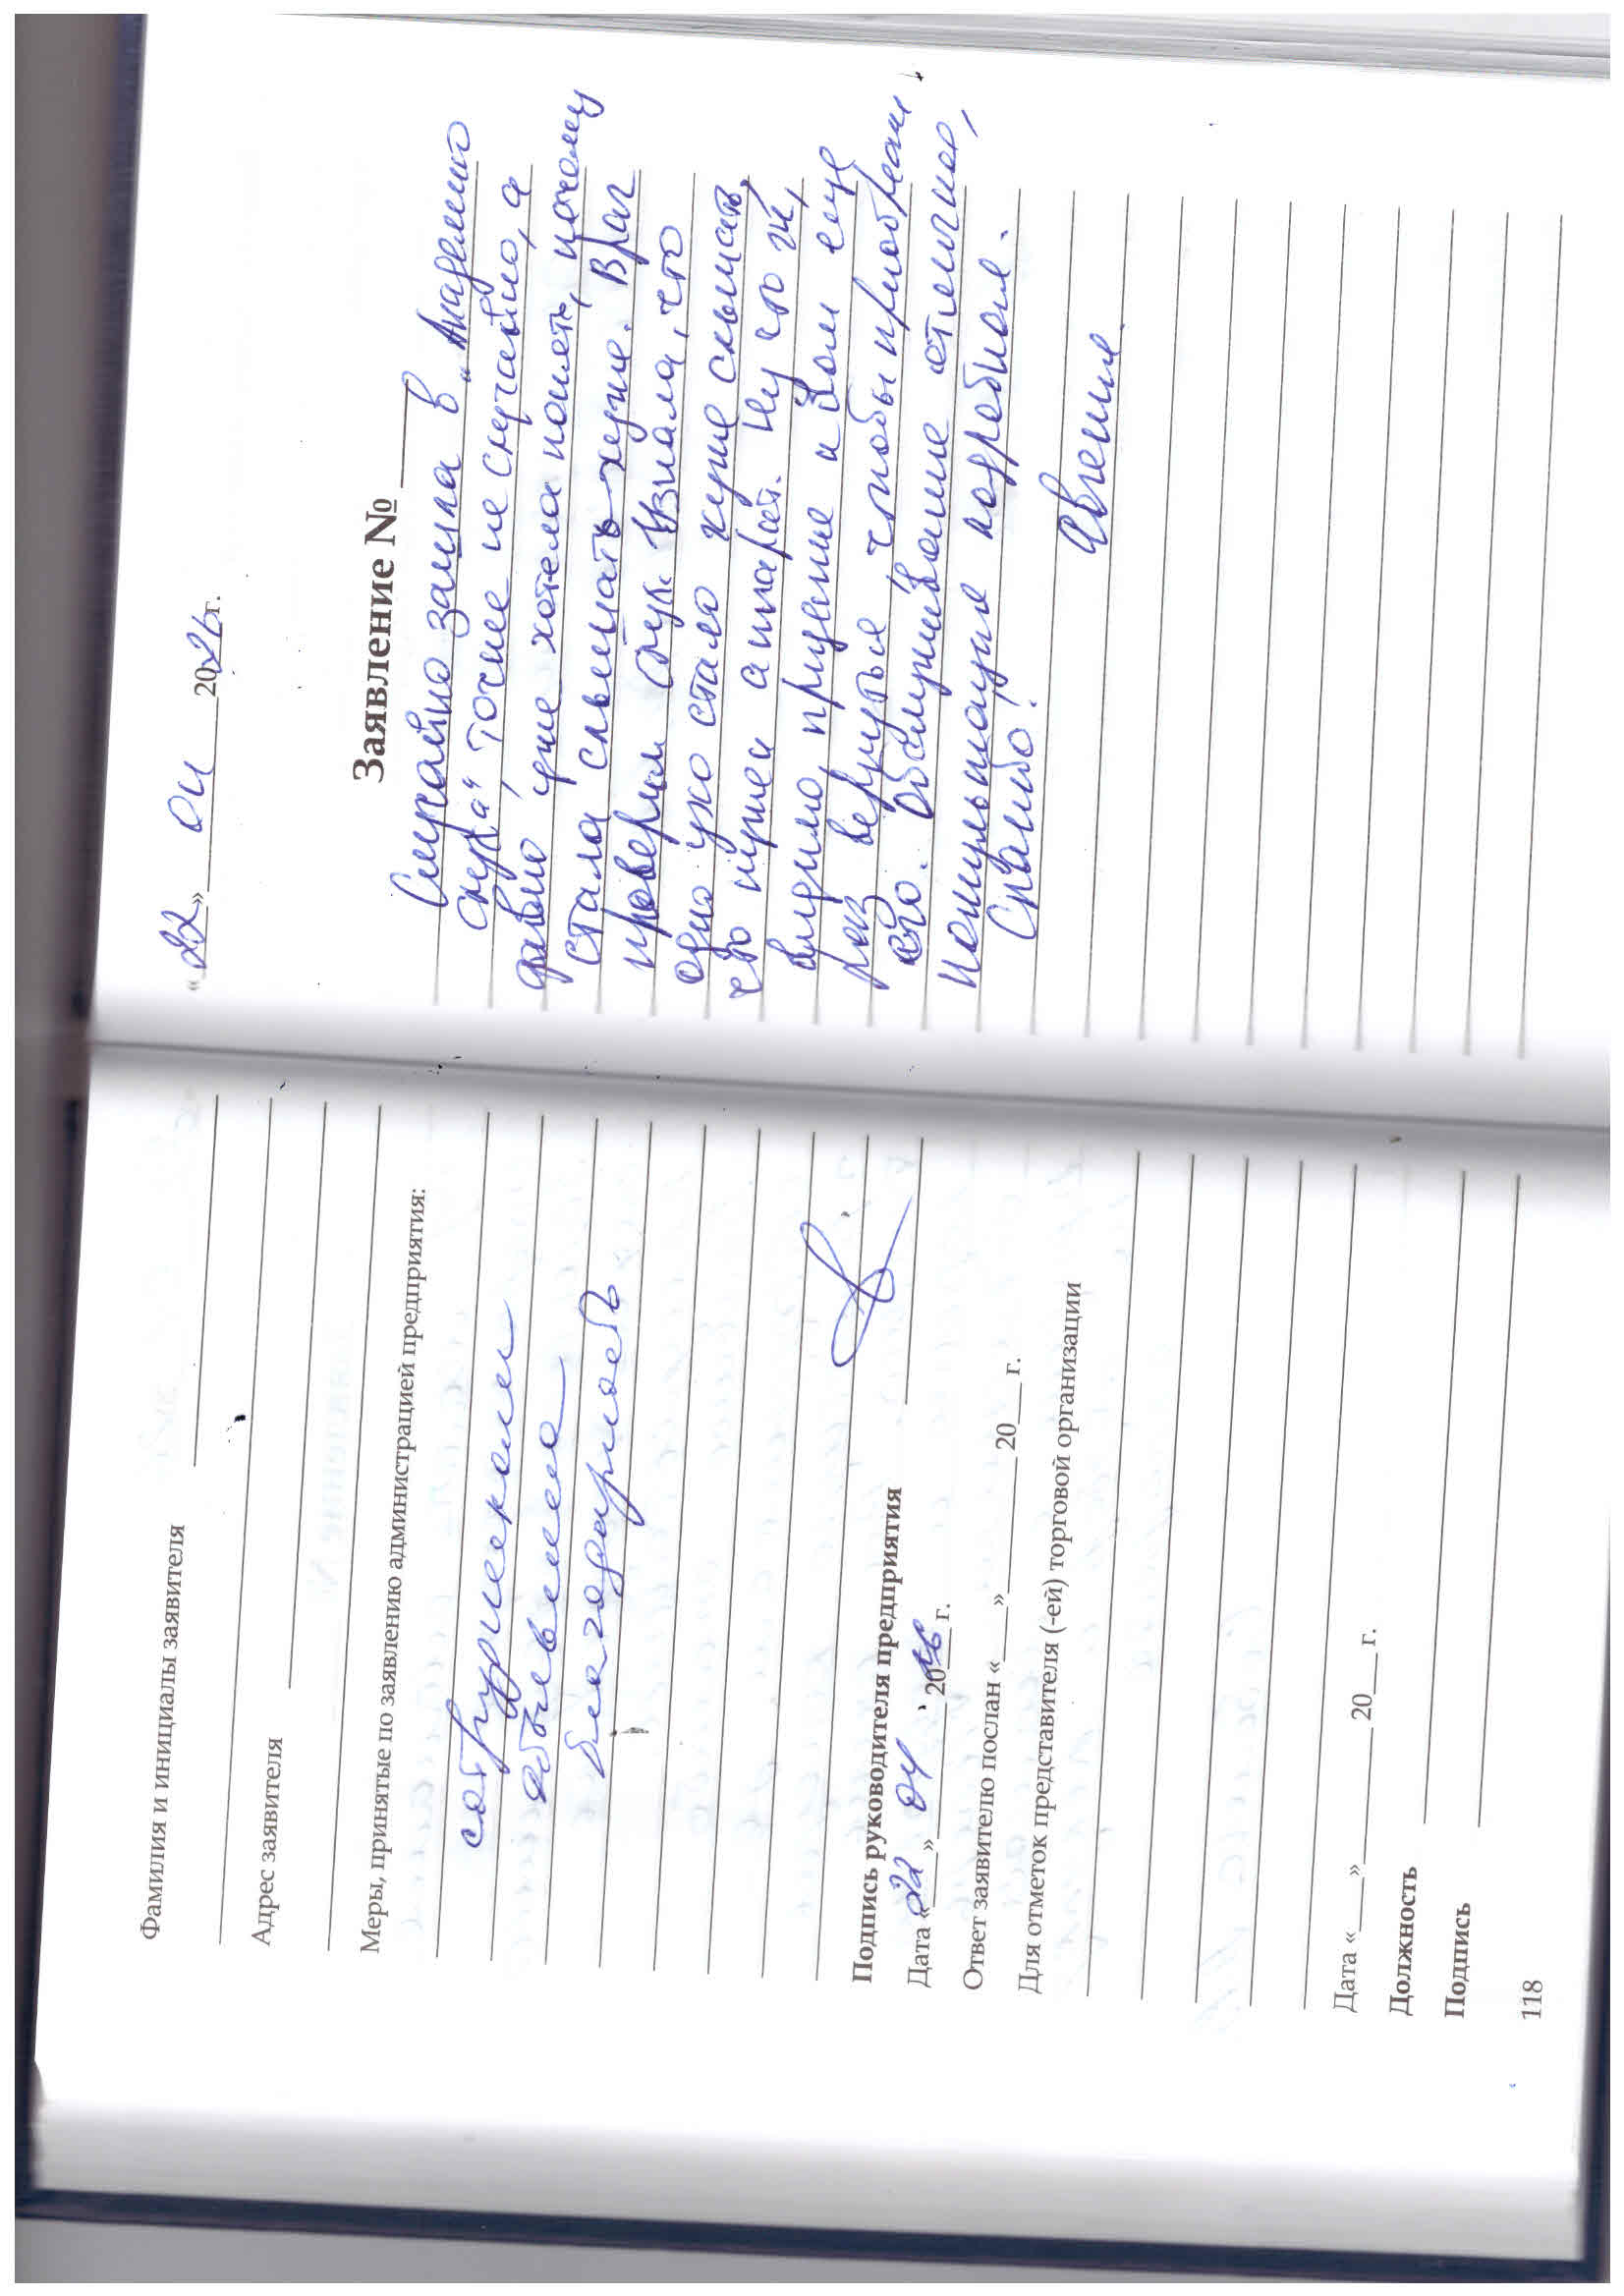 Фамилия и инициалы заявителя
Адрес заявителя
Меры, принятые по заявлению администрацией предприятия:
сотрудникам
объявлена
благодарность
Подпись руководителя предприятия
Дата «22» 04 2026 г.
Ответ заявителю послан «___» ______ 20___ г.
Для отметок представителя (-ей) торговой организации
Дата «___» ______ 20___ г.
Должность
Подпись
118
«22» 04 2026г.
Заявление № ____
Случайно зашла в „Академию
слуха" точнее не случайно, а
давно уже хотела понять, почему
стала слышать хуже. Врач
проверил слух. Узнала, что
одно ухо стало хуже слышать,
что нужен аппарат. Ну что ж,
видимо, придение к Вам еще
раз вернуться, чтобы приобрести
его. Обслуживание отличное,
консультация подробная.
Спасибо!
Евгения